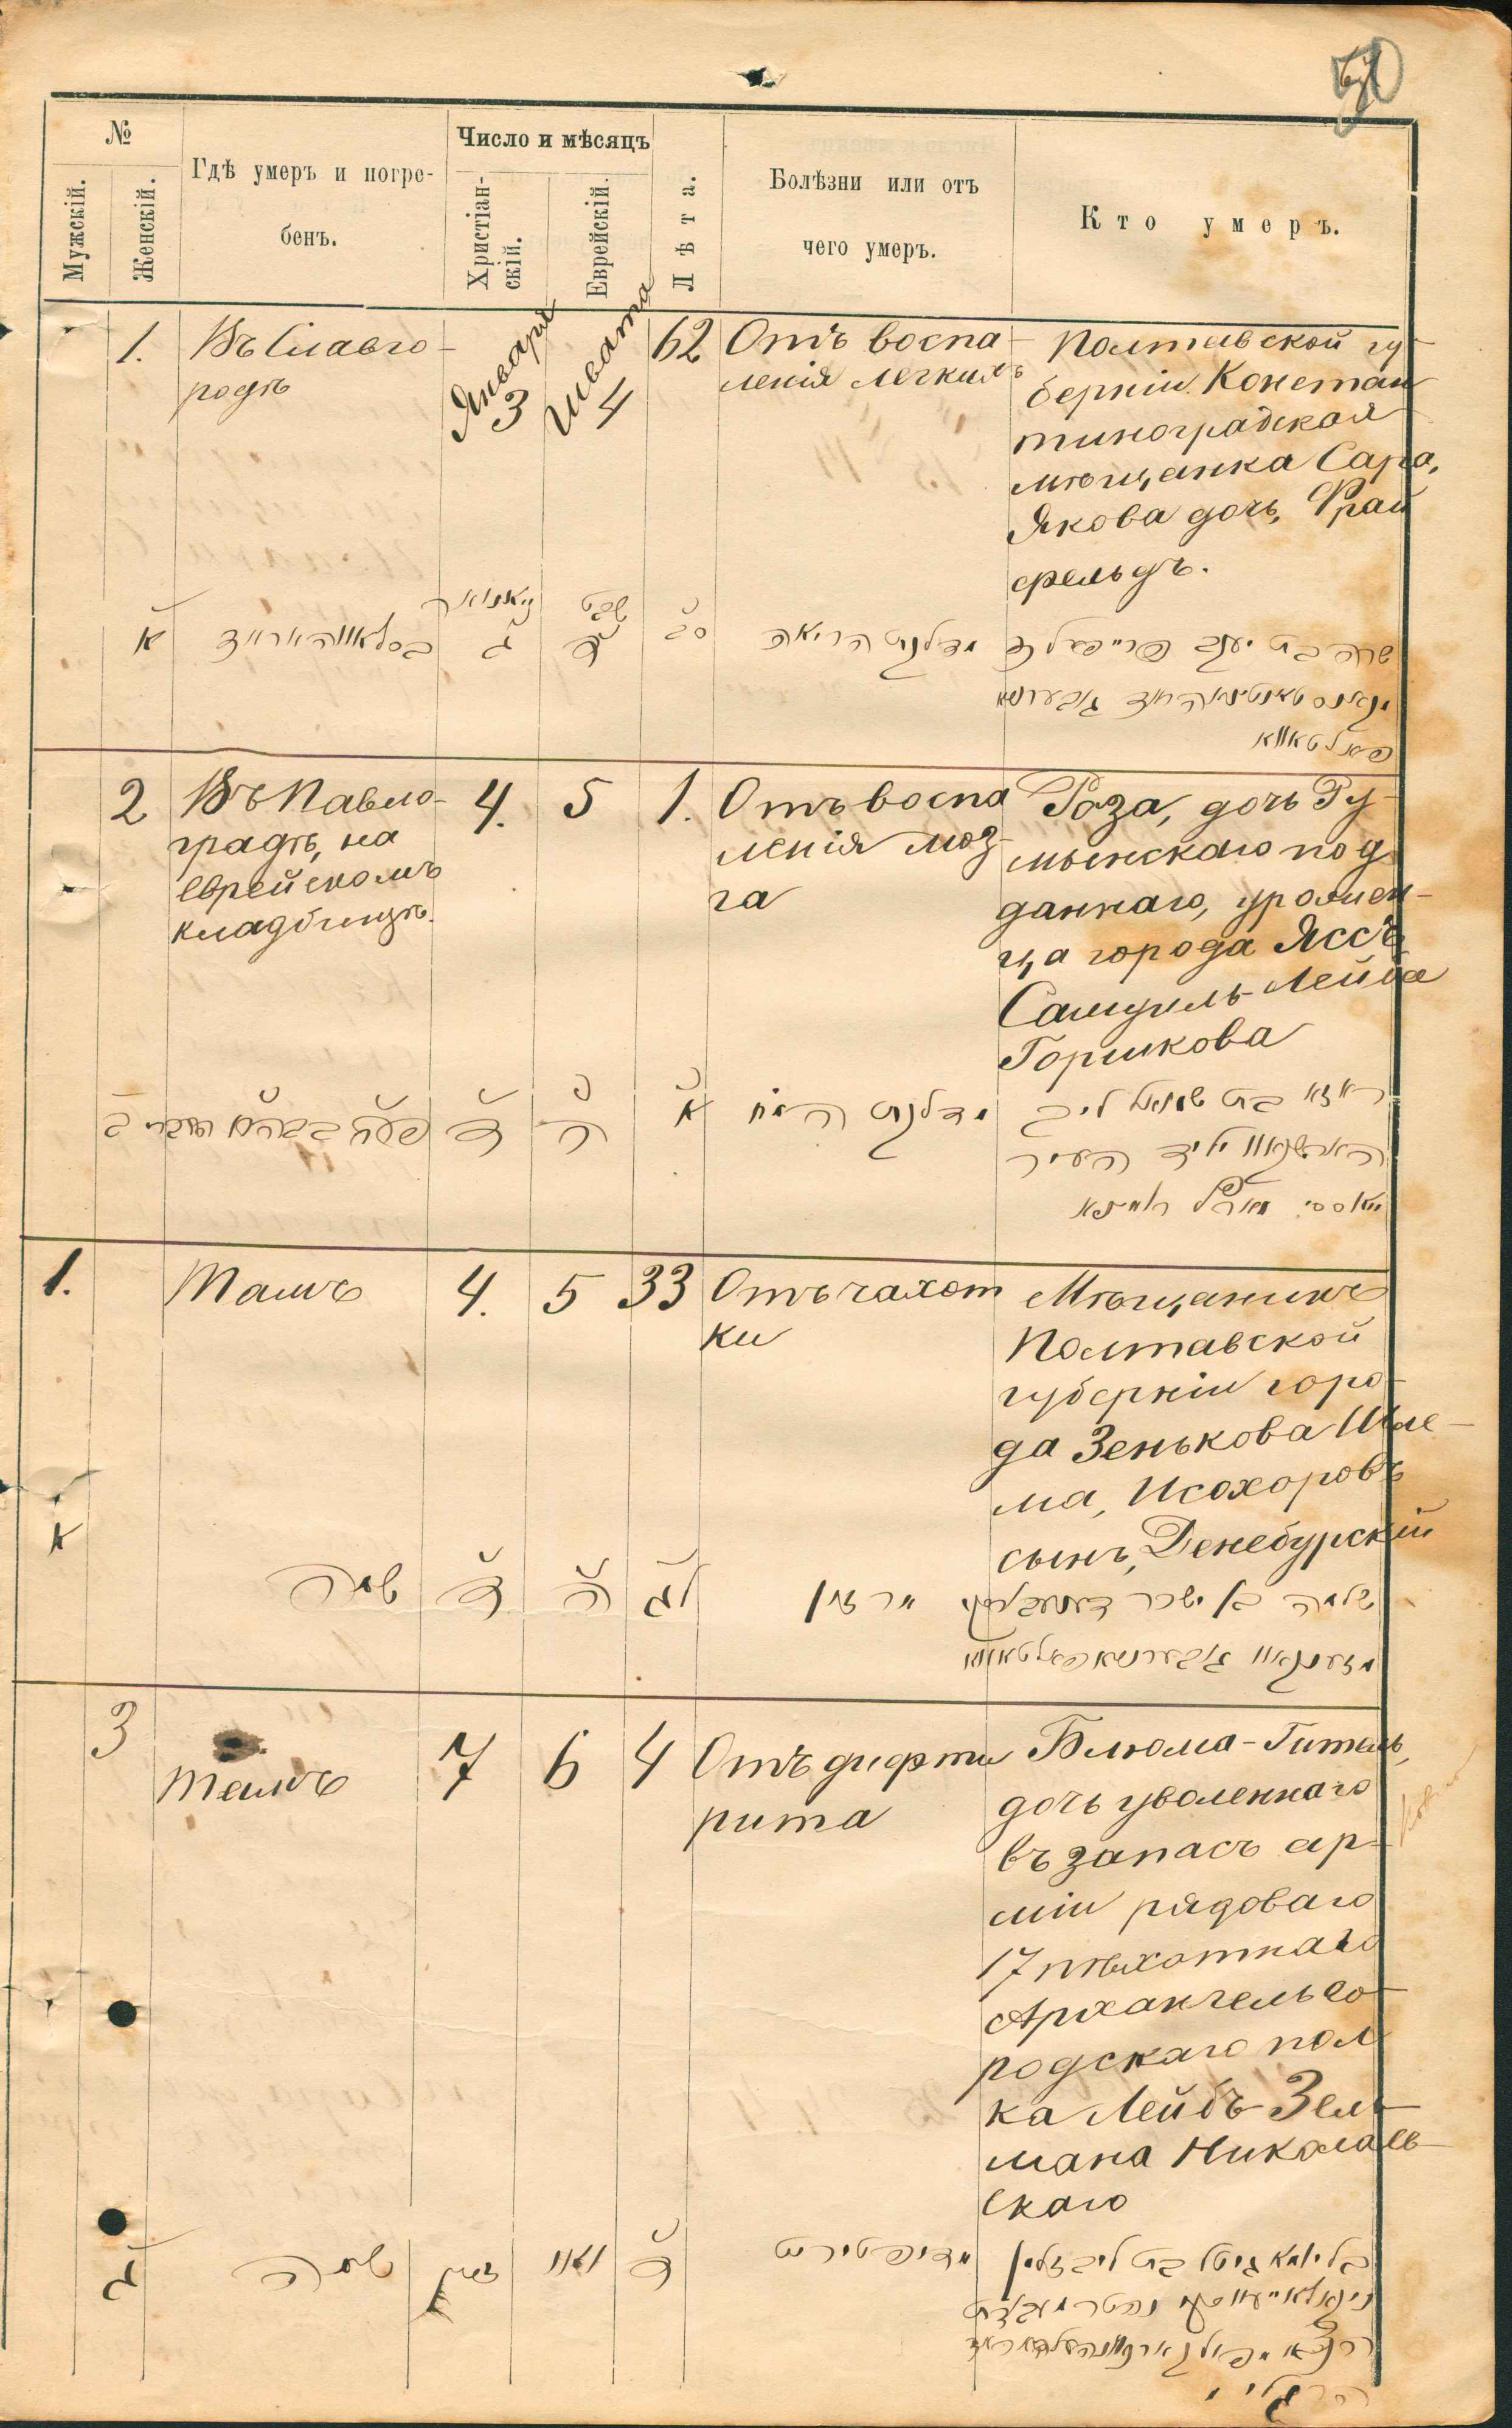 №
Мужскій.
Женскій.
Гдѣ умеръ и погре-
бенъ.
Число и мѣсяцъ
Христіан-
скій.
Еврейскій.
Лѣта.
Болѣзни или отъ
чего умеръ.
Кто умеръ.
1.
Въ Славго-
родѣ
Января
3
Швата
4
62
Отъ воспа-
ленія легкихъ
Полтавской гу-
берніи Констан
тиноградская
мѣщанка Сара,
Якова дочь, Фрай
фельдъ.
א
ג
שבט
ד
סב
מדלקת הריאה
שרה בת יעקב
2
Въ Павло-
градѣ, на
еврейскомъ
кладбищѣ.
4.
5
1.
Отъ воспа
ленія моз-
га
Роза, дочь Ру-
мынскаго под
даннаго, уромен-
ца города Яссъ
Самуиль-Лейба
Горшкова
ב
ד
ה
א
מדלקת המוח
ראזא בת שמואל ליב
יליד העיר
1.
Тамъ
4.
5
33
Отъ чахот
ки
Мѣщанинъ
Полтавской
губерніи горо-
да Зенькова Шле-
ма, Исохоровъ
сынъ, Денебурскій
א
שמה
ד
ה
לג
שלמה בן ישכר
3
Тамъ
7
6
4
Отъ дифте
рита
Блюма-Гитель,
дочь уволеннаго
въ запасъ ар-
міи рядоваго
17 пѣхотнаго
Архангельго-
родскаго пол
ка Лейбъ-Зель-
мана Николаев-
скаго
ג
שמה
זיין
וואו
ד
בליומא גיטל בת ליב זלמן